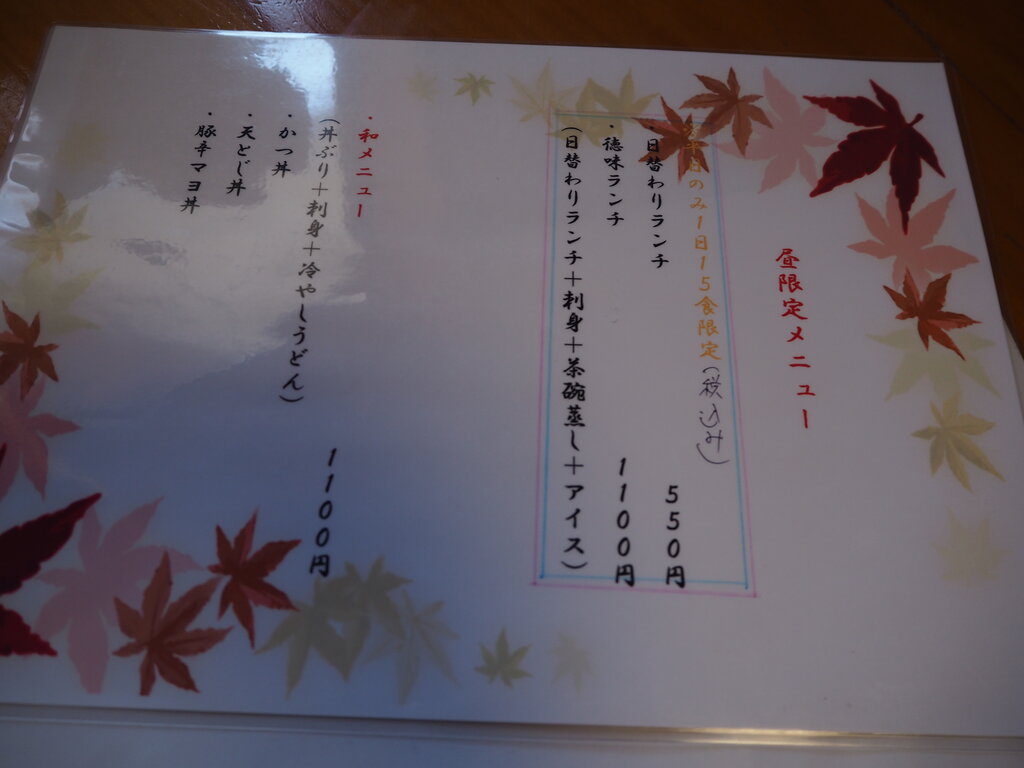 昼限定メニュー
平日のみ1日15食限定(税込み)
・日替わりランチ 550円
・徳味ランチ 1100円
(日替わりランチ+刺身+茶碗蒸し+アイス)
・和メニュー
(丼ぶり+刺身+冷やしうどん) 1100円
・かつ丼
・天とじ丼
・豚辛マヨ丼